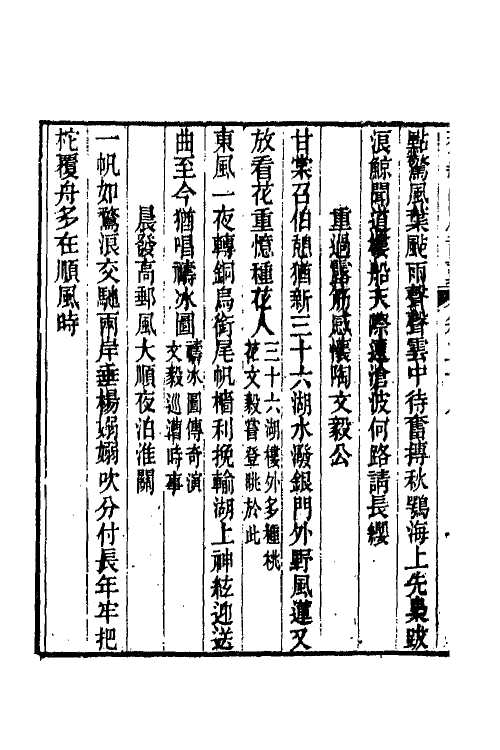 點驚風葉颭雨聲聲雲中待奮摶秋鶚海上先梟跋
浪鯨聞道樓船天際連滄波何路請長纓
重過露筋感懷陶文毅公
甘棠召伯憩猶新三十六湖水潑銀門外野風蓮又
放看花重憶種花人三十六湖樓外多種桃
花文毅嘗登眺於此
東風一夜轉銅烏銜尾帆檣利挽輸湖上神絃迎送
曲至今猶唱禱冰圖禱冰圖傳奇演
文毅巡漕時事
晨發高郵風大順夜泊淮關
一帆如騖浪交馳兩岸垂楊嫋嫋吹分付長年牢把
柁覆舟多在順風時